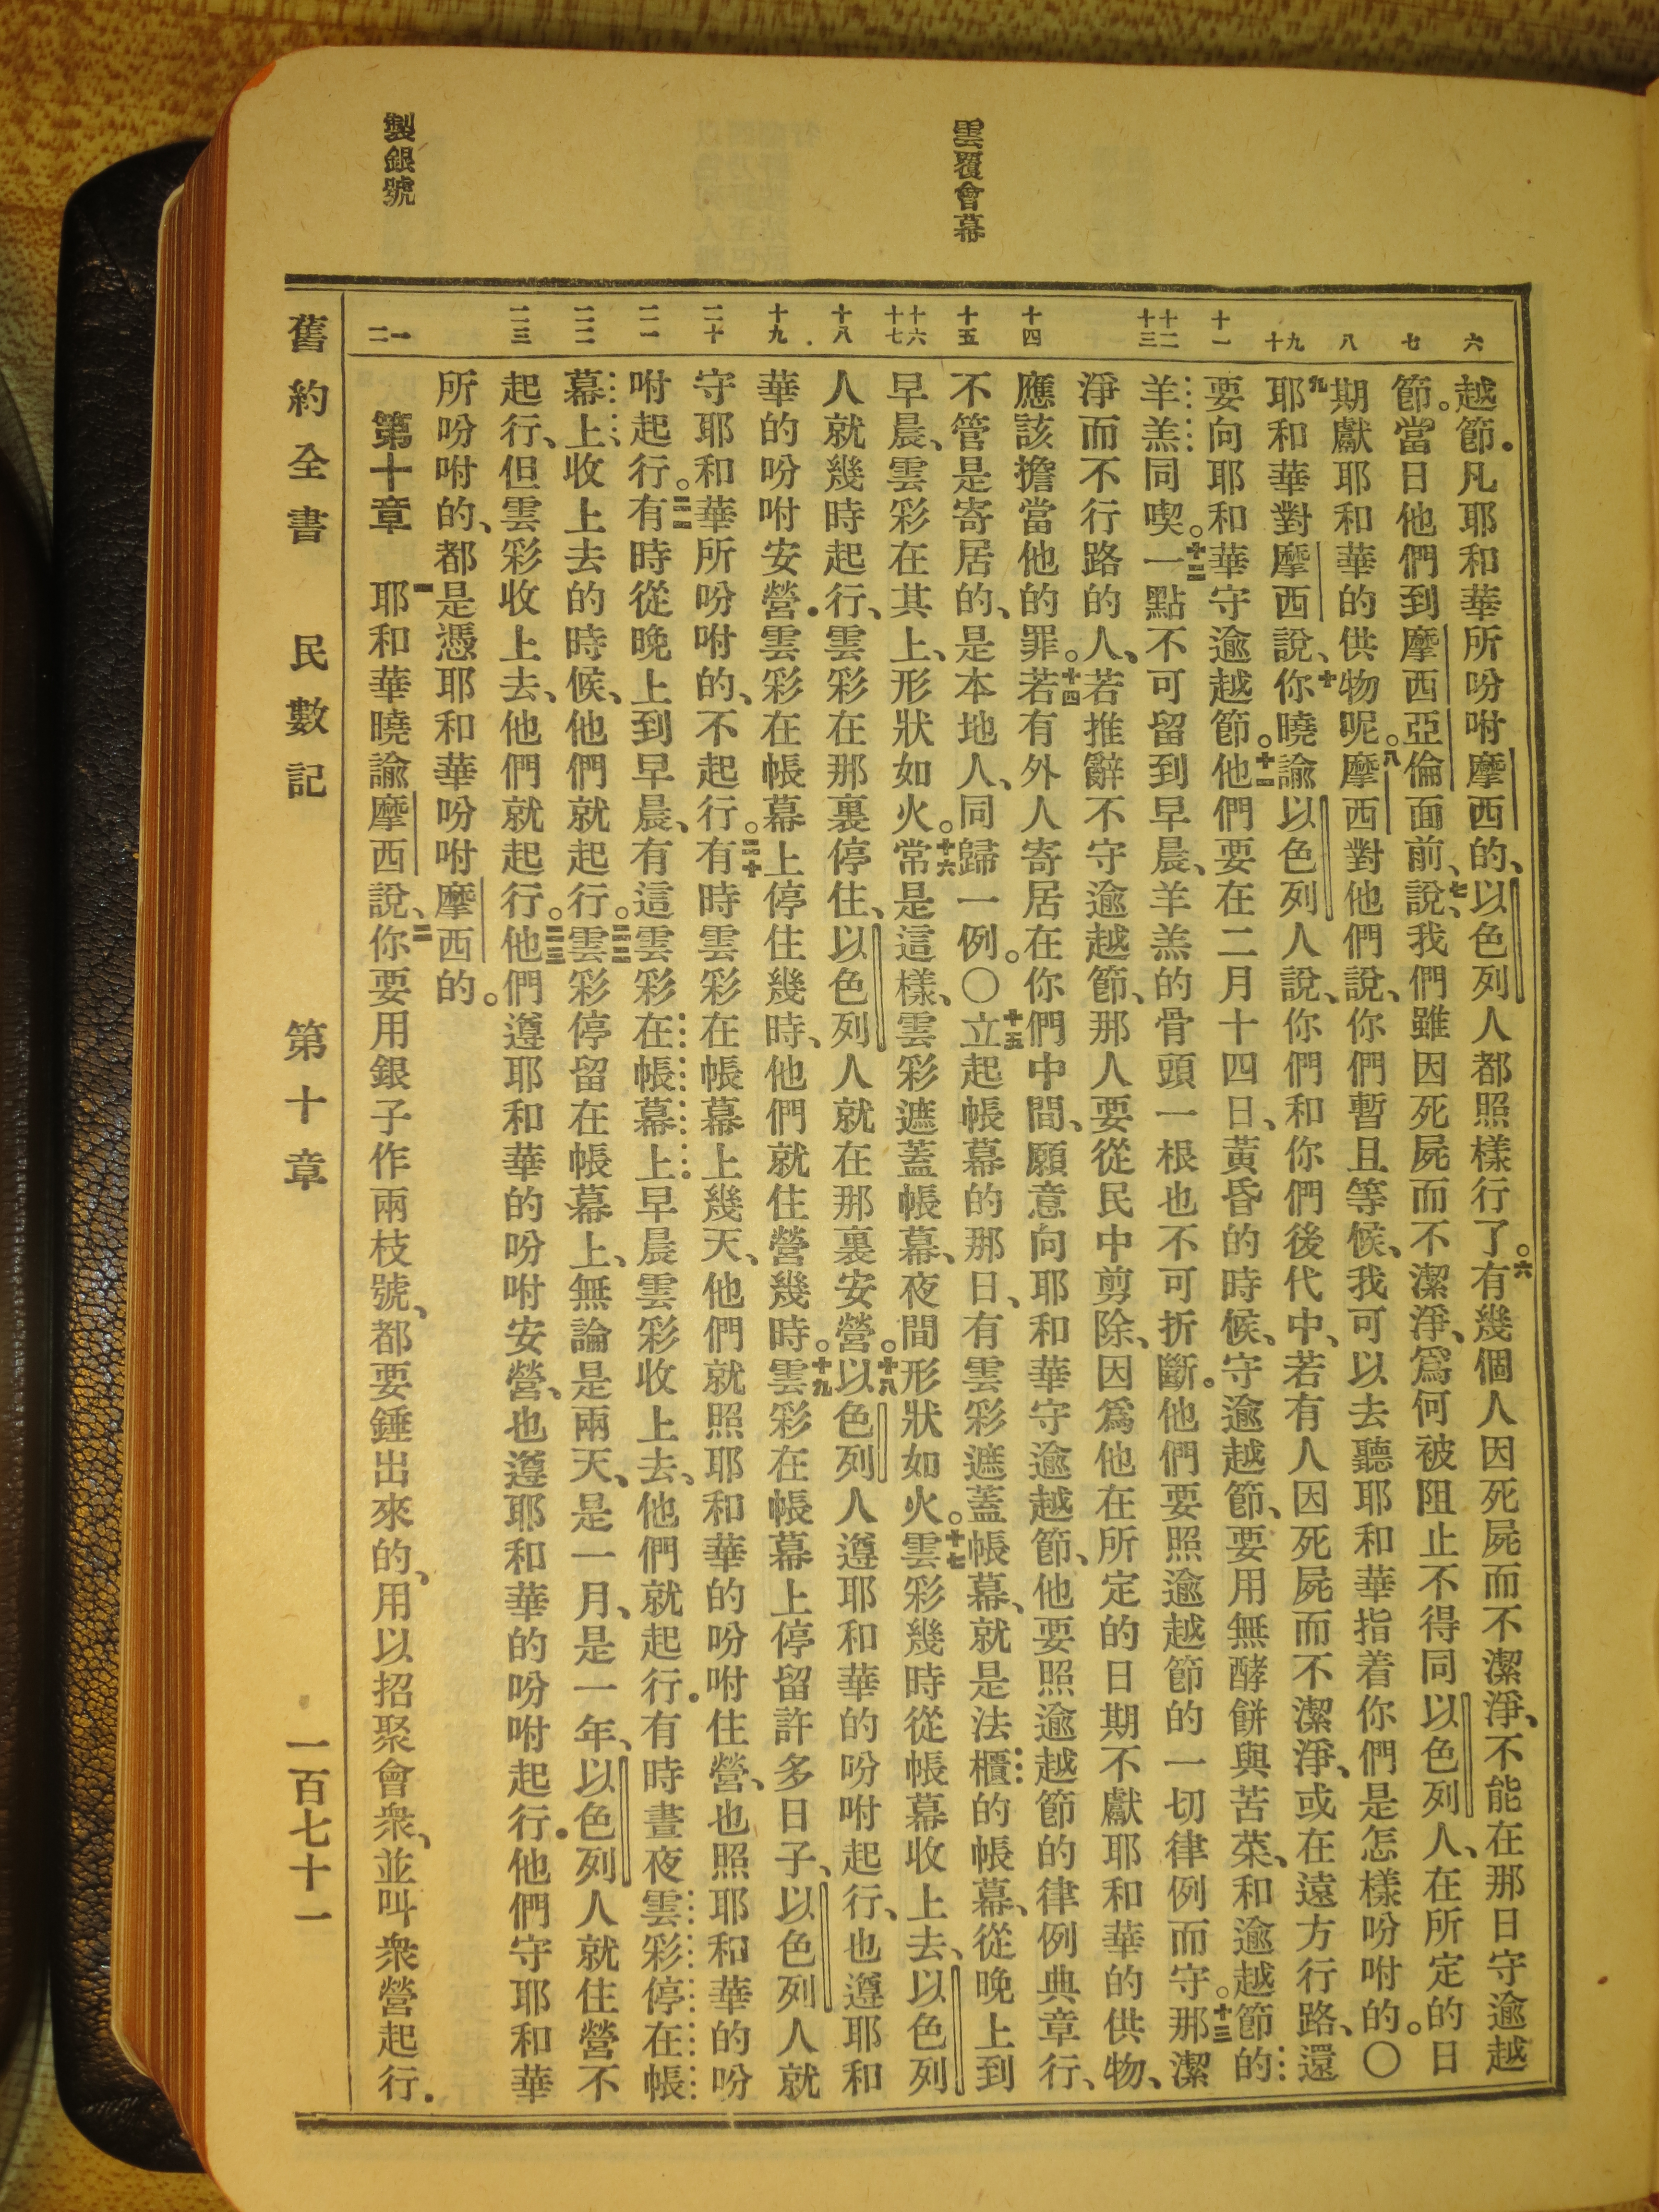 雲覆會幕
製銀號
六
七
八
九
十
十一
十二
十三
十四
十五
十六
十七
十八
十九
二十
二一
二二
二三
一
二
越節．凡耶和華所吩咐摩西的、以色列人都照樣行了。六有幾個人因死屍而不潔淨、不能在那日守逾越
節。當日他們到摩西亞倫面前、七說、我們雖因死屍而不潔淨、爲何被阻止不得同以色列人、在所定的日
期獻耶和華的供物呢。八摩西對他們說、你們暫且等候、我可以去聽耶和華指着你們是怎樣吩咐的。〇
九耶和華對摩西說、十你曉諭以色列人說、你們和你們後代中、若有人因死屍而不潔淨、或在遠方行路、還
要向耶和華守逾越節。十一他們要在二月十四日、黃昏的時候、守逾越節、要用無酵餅與苦菜、和逾越節的
羊羔同喫。十二一點不可留到早晨、羊羔的骨頭一根也不可折斷。他們要照逾越節的一切律例而守。十三那潔
淨而不行路的人、若推辭不守逾越節、那人要從民中剪除、因爲他在所定的日期不獻耶和華的供物、
應該擔當他的罪。十四若有外人寄居在你們中間、願意向耶和華守逾越節、他要照逾越節的律例典章行、
不管是寄居的、是本地人、同歸一例。〇十五立起帳幕的那日、有雲彩遮蓋帳幕、就是法櫃的帳幕、從晚上到
早晨、雲彩在其上、形狀如火。十六常是這樣、雲彩遮蓋帳幕、夜間形狀如火。十七雲彩幾時從帳幕收上去、以色列
人就幾時起行、雲彩在那裏停住、以色列人就在那裏安營。十八以色列人遵耶和華的吩咐起行、也遵耶和
華的吩咐安營．雲彩在帳幕上停住幾時、他們就住營幾時。十九雲彩在帳幕上停留許多日子、以色列人就
守耶和華所吩咐的、不起行。二十有時雲彩在帳幕上幾天、他們就照耶和華的吩咐住營、也照耶和華的吩
咐起行。二一有時從晚上到早晨、有這雲彩在帳幕上．早晨雲彩收上去、他們就起行．有時晝夜雲彩停在帳
幕上、收上去的時候、他們就起行。二二雲彩停留在帳幕上、無論是兩天、是一月、是一年、以色列人就住營不
起行、但雲彩收上去、他們就起行。二三他們遵耶和華的吩咐安營、也遵耶和華的吩咐起行．他們守耶和華
所吩咐的、都是憑耶和華吩咐摩西的。
第十章　一耶和華曉諭摩西說、二你要用銀子作兩枝號、都要錘出來的、用以招聚會衆、並叫衆營起行．
舊約全書　民數記　第十章　一百七十一